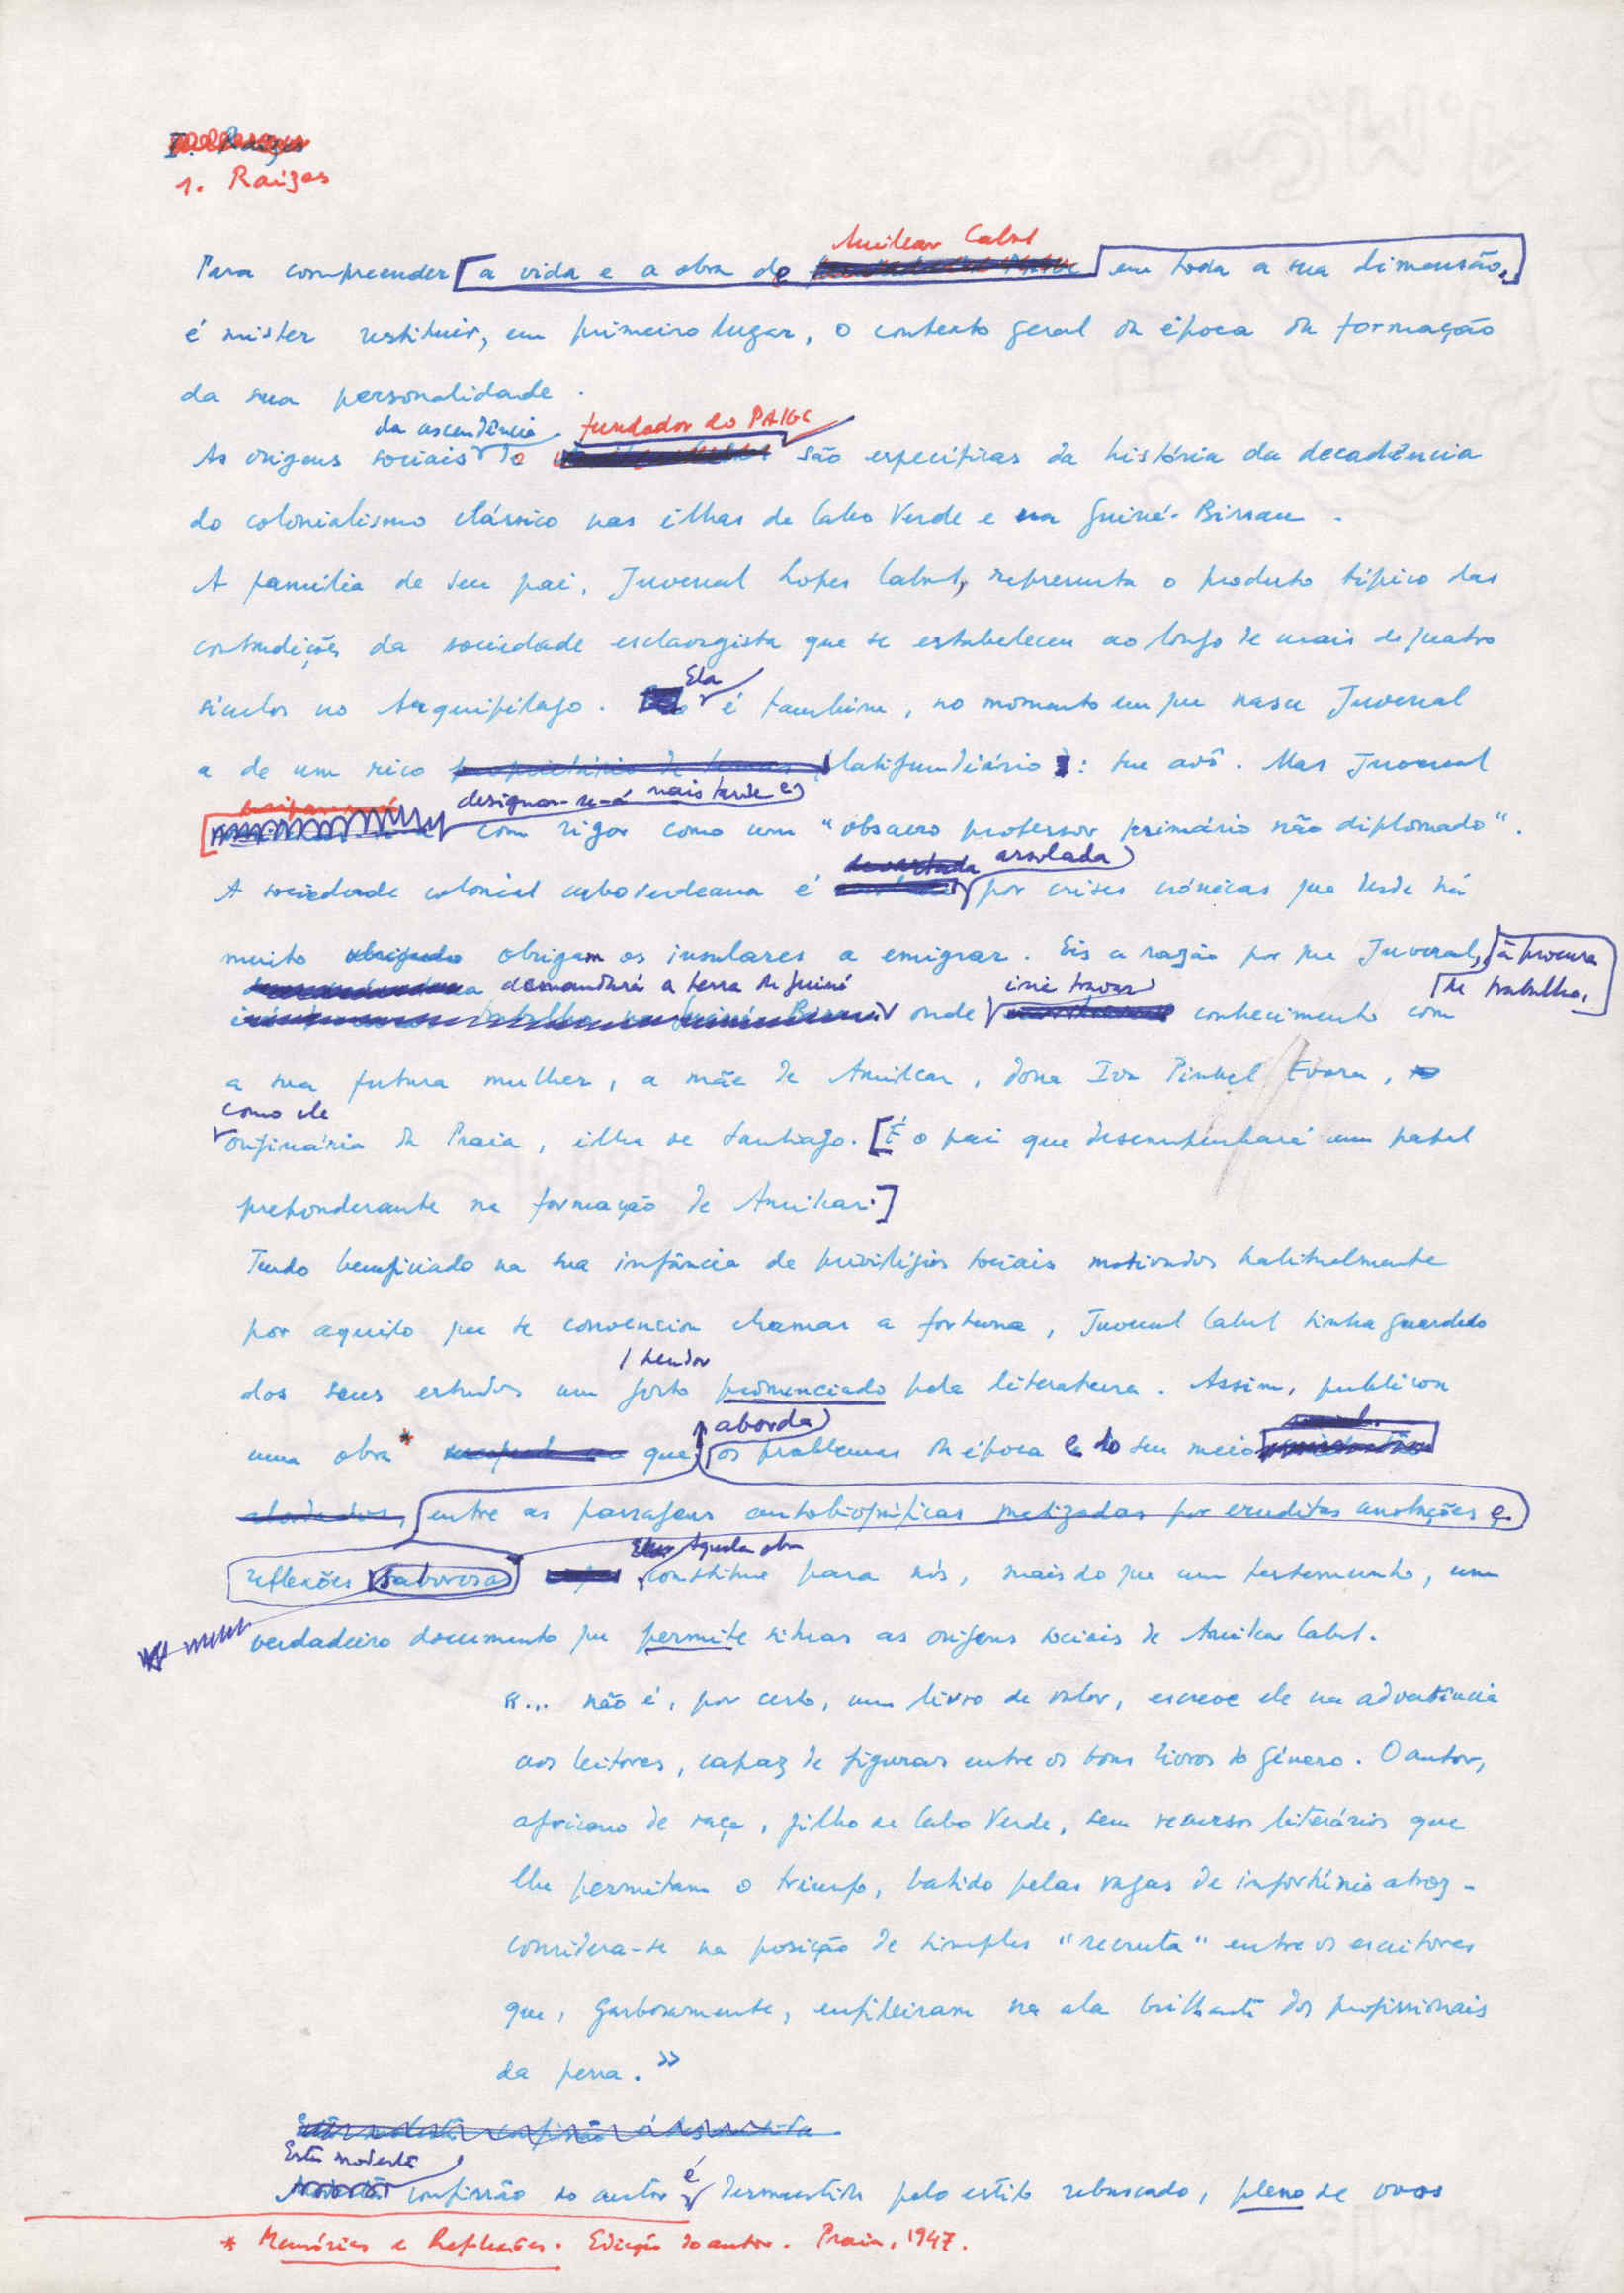 I. Raízes
1. Raízes
Amílcar Cabral
Para compreender a vida e a obra de em toda a sua dimensão,
é mister restituir, em primeiro lugar, o contexto geral da época da formação
da sua personalidade.
da ascendência fundador do PAIGC
As origens sociais do são específicas da história da decadência
do colonialismo clássico nas ilhas de Cabo Verde e na Guiné-Bissau.
A família de seu pai, Juvenal Lopes Cabral, representa o produto típico das
contradições da sociedade esclavagista que se estabeleceu ao longo de mais de quatro
séculos no Arquipélago. Ela é também, no momento em que nasce Juvenal
a de um rico proprietário de terras, latifundiário: seu avô. Mas Juvenal
designar-se-á mais tarde e
com rigor como um "obscuro professor primário não diplomado".
devastada assolada
A sociedade colonial caboverdeana é por crises crónicas que desde há
muito obrigado obrigam os insulares a emigrar. Eis a razão por que Juvenal, à procura
de trabalho,
demandará a terra da Guiné irá travar
onde conhecimento com
a sua futura mulher, a mãe de Amílcar, dona Iva Pinhel Évora,
como ele
originária da Praia, ilha de Santiago. [É o pai que desempenhará um papel
preponderante na formação de Amílcar.]
Tendo beneficiado na sua infância de privilégios sociais motivados habitualmente
por aquilo que se convencion chamar a fortuna, Juvenal Cabral tinha guardado
/ pendor
dos seus estudos um gosto pronunciado pela literatura. Assim, publicou
aborda
uma obra* que os problemas da época e do seu meio
abordados, entre as passagens autobiográficas matizadas por eruditas anotações e
Aquela obra
reflexões saborosas constitue para nós, mais do que um testemunho, um
verdadeiro documento que permite situar as origens sociais de Amílcar Cabral.
«... não é, por certo, um livro de valor, escreve ele na advertência
aos leitores, capaz de figurar entre os bons livros do género. O autor,
africano de raça, filho de Cabo Verde, sem recursos literários que
lhe permitam o triunfo, batido pelas vagas de infortúnio atroz -
considera-se na posição de simples "recruta" entre os escritores
que, garbosamente, enfileiram na ala brilhante dos profissionais
da pena.»
Esta modesta confissão é desmentida
Esta modesta é
confissão do autor desmentida pelo estilo rebuscado, pleno de
* Memórias e Reflexões. Edição do autor. Praia, 1947.